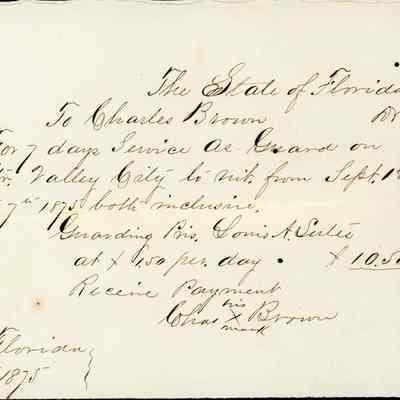 The State of Florida
To Charles Brown Dr
For 7 days Service as Guard on
Str. Valley City to wit. from Sept. 1st
7th 1875 both inclusive.
Guarding Pris. Louis A.
at $ 1.50 per. day. $ 10.50
Receive Payment
Chas his X mark Brown
Florida
1875